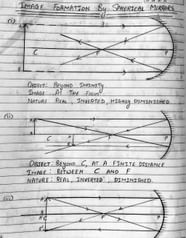 IMAGE FORMATION BY SPHERICAL MIRRORS
(i)
C
OBJECT: BEYOND INFINITY
IMAGE: AT THE FOCUS
NATURE: REAL, INVERTED, HIGHLY DIMINISHED
(ii)
OBJECT: BEYOND C, AT A FINITE DISTANCE
IMAGE: BETWEEN C AND F
NATURE: REAL, INVERTED, DIMINISHED.
(iii)